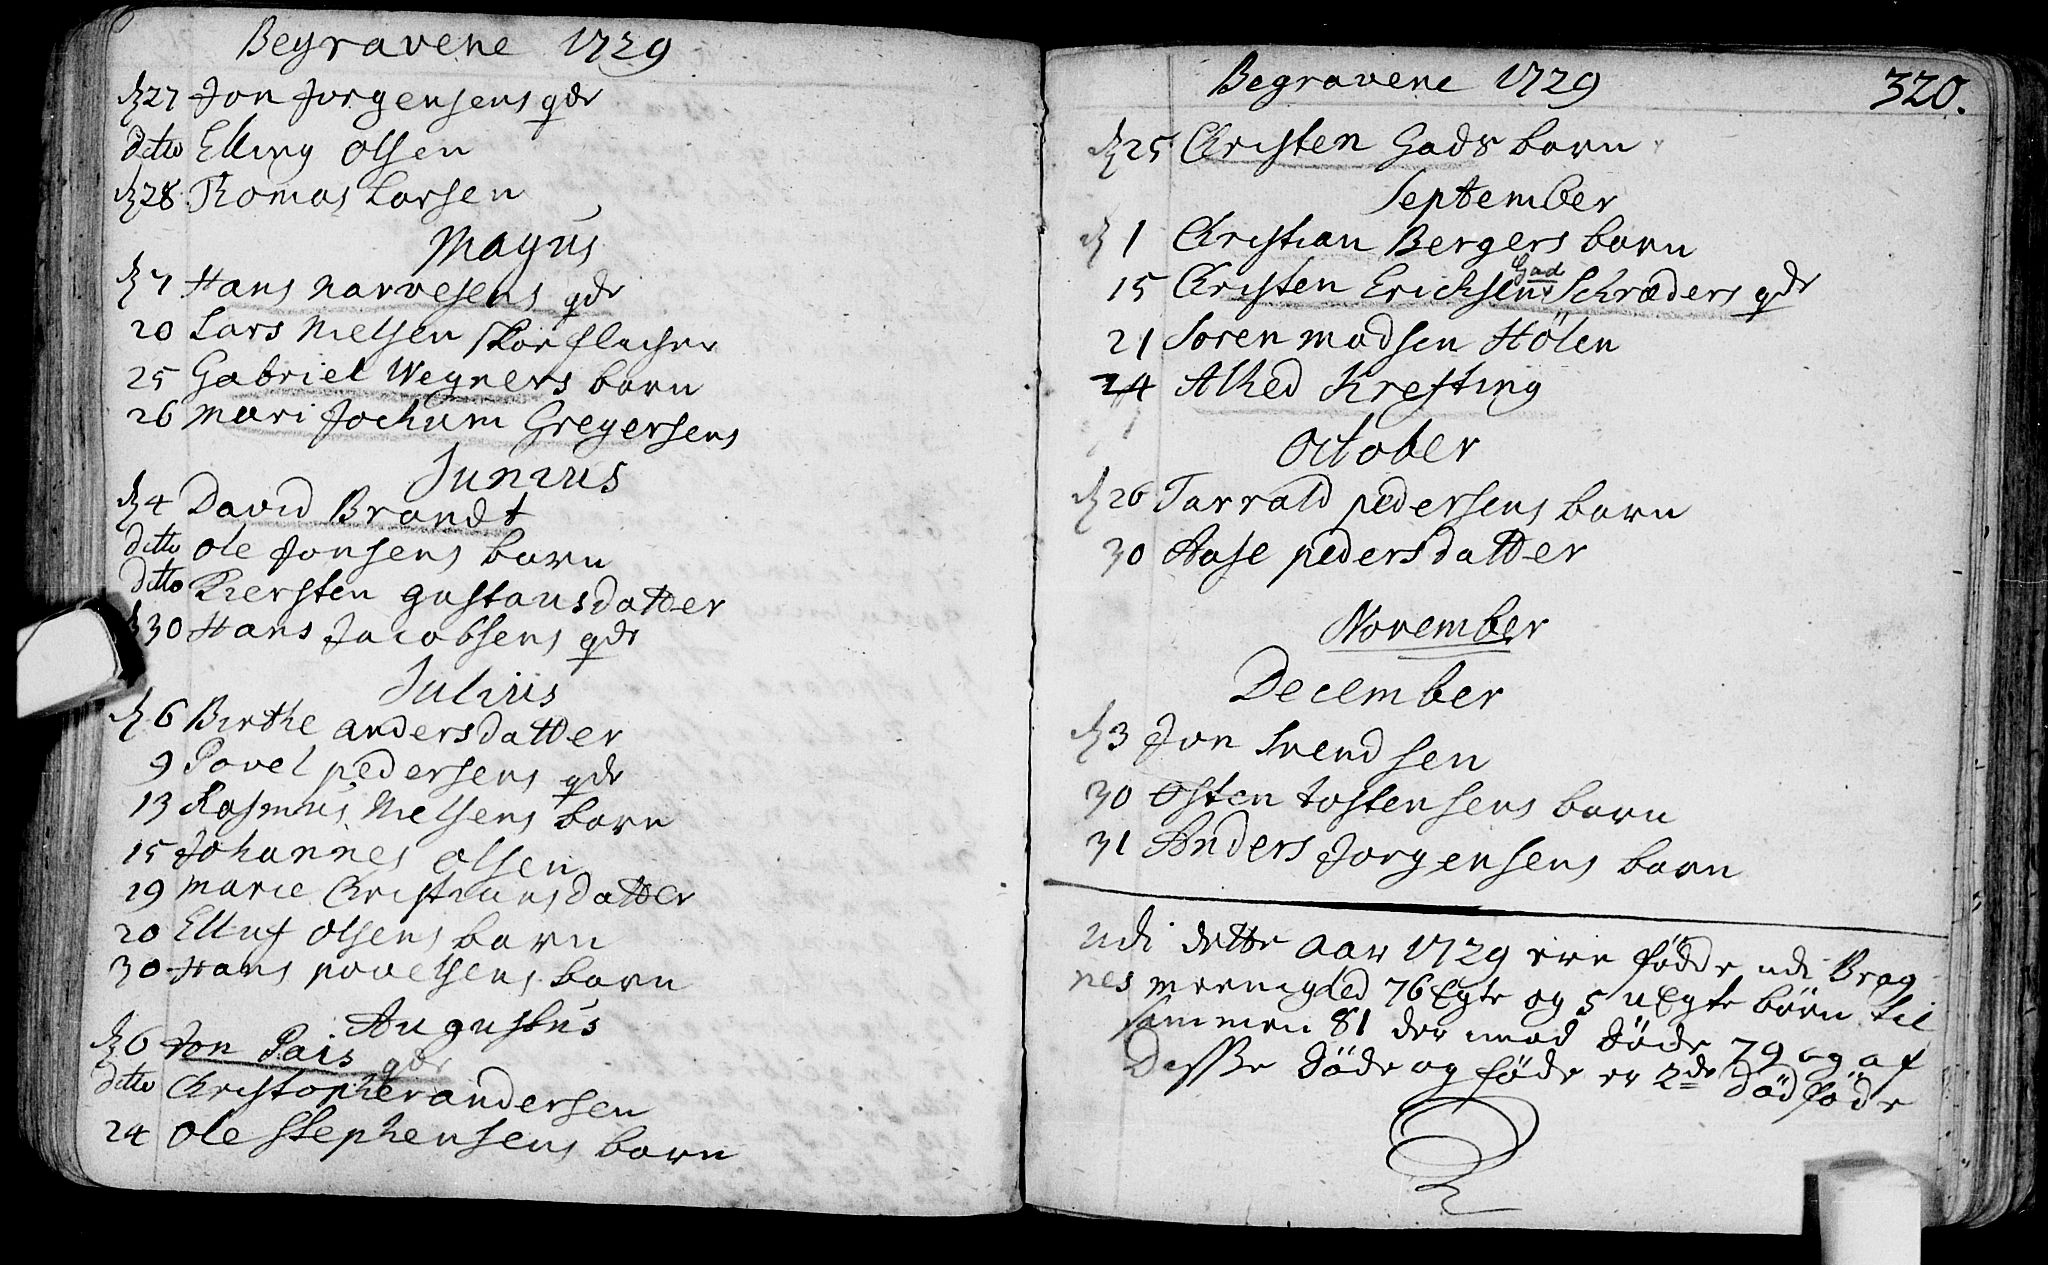 Begravene 1729
d 27 Jon Jorgensens qdr
ditto Elling Olsen
d 28 Thomas Larsen
Mayus
d 7 Hans Narvesens qdr
20 Lars Nielsen skorflicher
25 Gabriel Wegners barn
26 Mari Jochum Gregersens
Junius
d 4 David Brandt
ditto Ole Jonsens barn
ditto Kiersten gustausdatter
d 30 Hans Jacobsens qdr
Julius
d 6 Birthe andersdatter
9 Povel pedersens qdr
13 Rasmus Nielsens barn
15 Johannes olsen
19 Marie Christiansdatter
20 Elluf olsens barn
30 Hans povelsens barn
Augustus
d 6 Jon Pais qdr
ditto Christopher andersen
24 Ole Stephensens barn
Begravene 1729 320.
d 25 Christen Gads barn
September
d 1 Christian Bergers barn
Gad
15 Christen Ericksens Schræders qdr
21 Soren madsen Hölen
24 Alhed Krefting
October
d 26 Tarrald pedersens barn
30 Aase pedersdatter
November
December
d 3 Jon Svendsen
30 Osten tostensens barn
31 Anders Jorgensens barn
Udi dette aar 1729 ere födde udi Brag
nes meenighed 76 Egte og 5 uEgte börn til
sammen 81 der imod döde 79 og af
Disse döde og föde er 2de dödföde